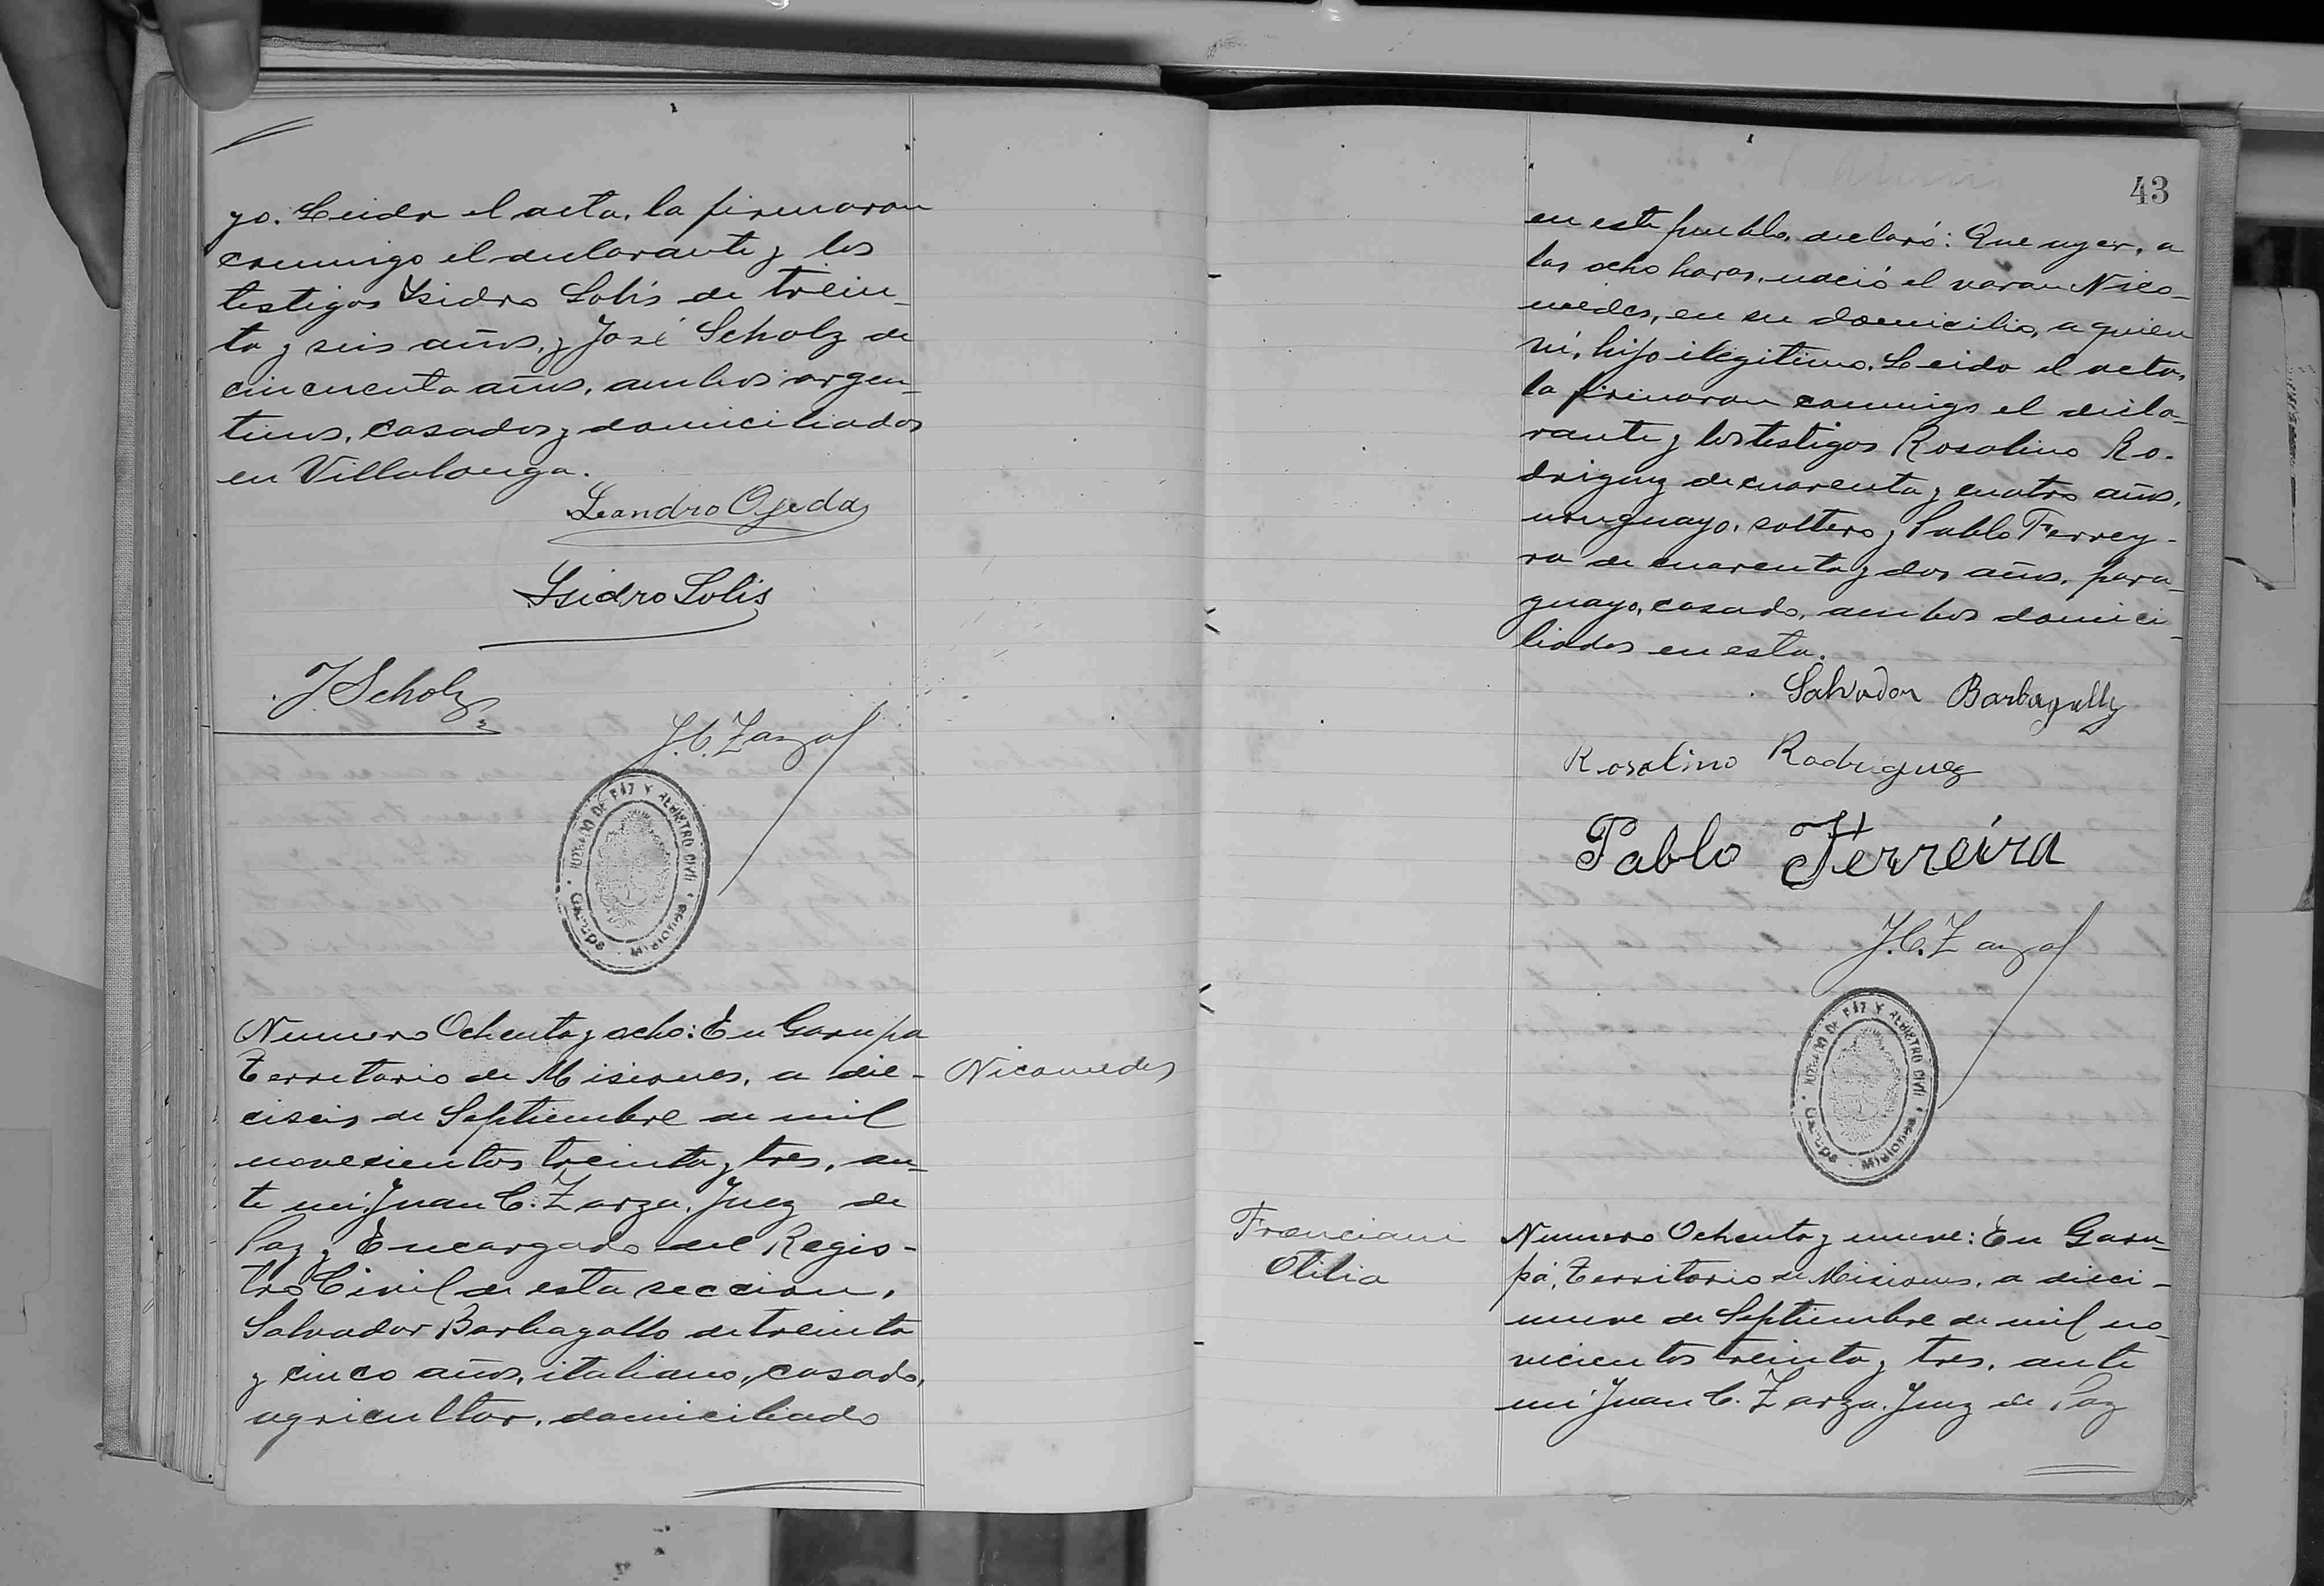 yo. Leida el acta, la firmaron
conmigo el declarante y los
testigos Ysidro Solis de trein-
ta y seis años, y José Scholz de
cincuenta años, ambos argen-
tinos, casados y domiciliados
en Villalonga.
Leandro Ojeda
Ysidro Solis
J Scholz
J. C. Zarza
JUZGADO DE PAZ Y REGISTRO CIVIL
Garupá - Misiones
Numero Ochenta y ocho: En Garupa
Territorio de Misiones, a die-
ciseis de Septiembre de mil
novecientos treinta y tres, an-
te mi, Juan C. Zarza, Juez de
Paz y Encargado del Regis-
tro Civil de esta seccion,
Salvador Barbagallo de treinta
y cinco años, italiano, casado,
agricultor, domiciliado
Nicomedes
43
en este pueblo, declaró: Que ayer, a
las ocho horas, nació el varon Nico-
medes, en su domicilio, a quien
ví, hijo ilegitimo. Leida el acta,
la firmaron conmigo el decla-
rante y los testigos Rosalino Ro-
driguez de cuarenta y cuatro años,
uruguayo, soltero y Pablo Ferrey-
ra de cuarenta y dos años, para-
guayo, casado, ambos domici-
liados en esta.
Salvador Barbagally
Rosalino Rodriguez
Pablo Ferreira
J. C. Zarza
JUZGADO DE PAZ Y REGISTRO CIVIL
Garupá - Misiones
Otilia
Numero Ochenta y nueve: En Garu-
pá, Territorio de Misiones, a dieci-
nueve de Septiembre de mil no-
vecientos treinta y tres, ante
mi Juan C. Zarza, Juez de Paz